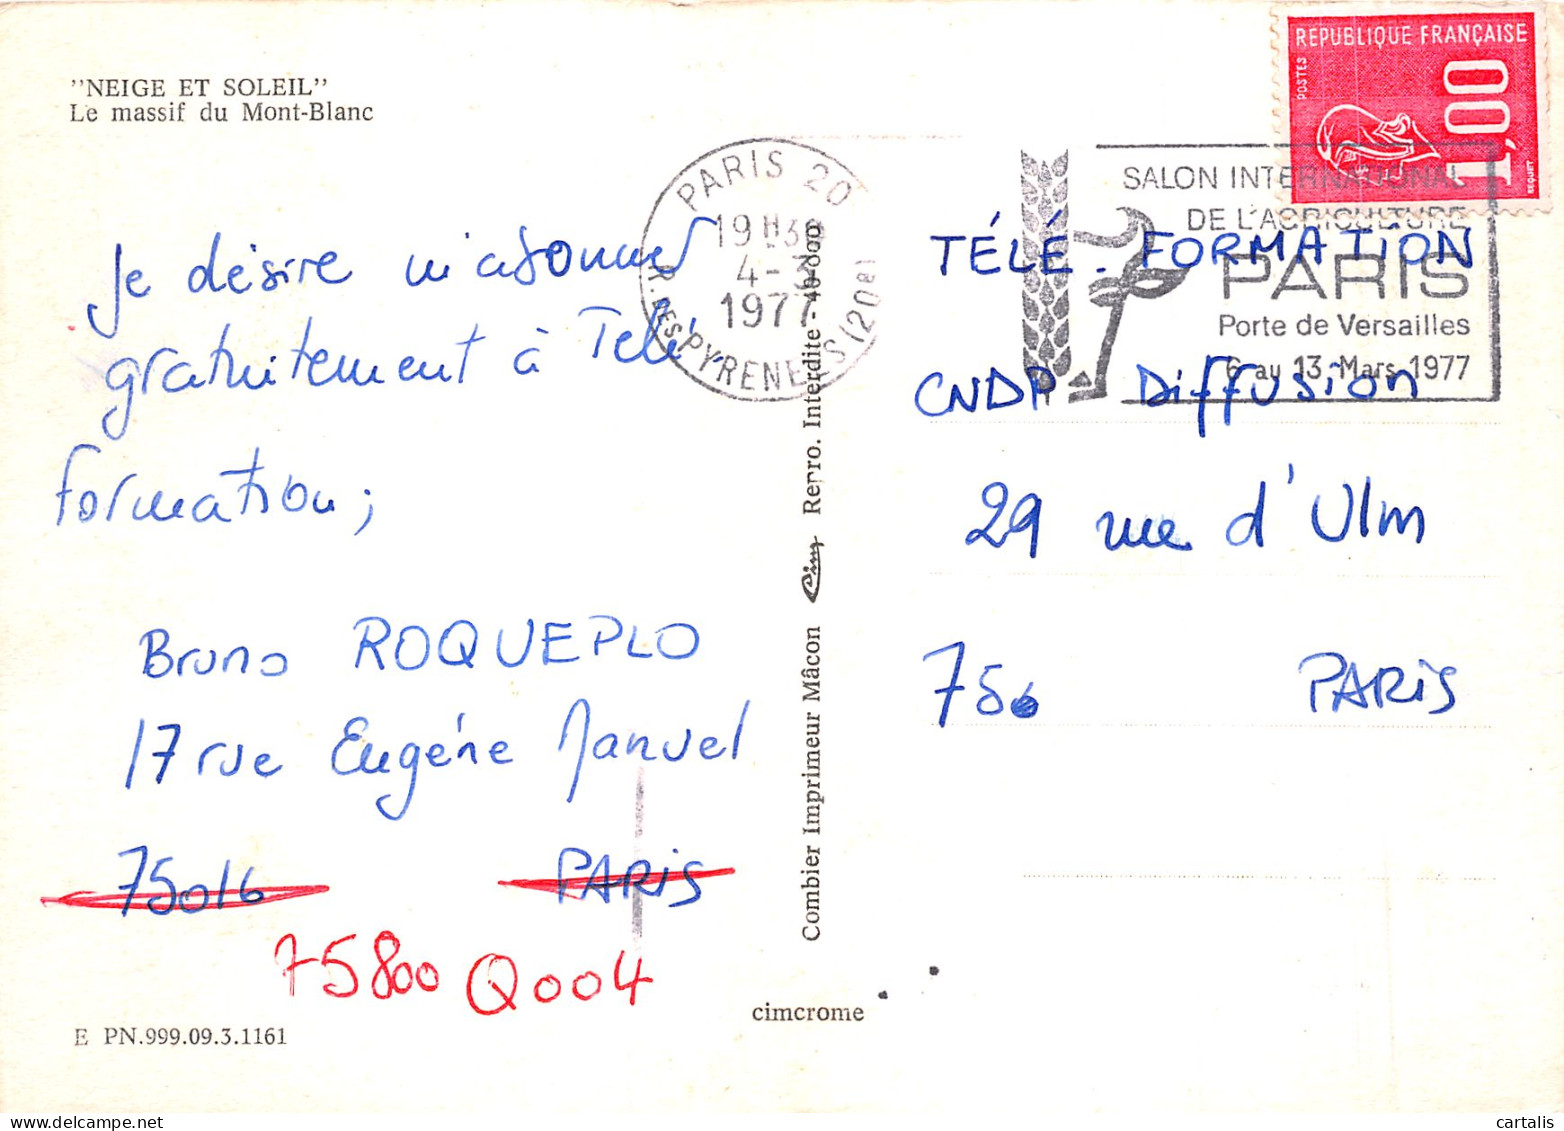 "NEIGE ET SOLEIL"
Le massif du Mont-Blanc
RÉPUBLIQUE FRANÇAISE
POSTES
1,00
BEQUET
PARIS 20
19H30
4-3
1977
R. DES PYRENEES (20e)
SALON INTERNATIONAL
DE L'AGRICULTURE
PARIS
Porte de Versailles
6 au 13 Mars 1977
Je désire m'abonner
gratuitement à Télé.
formation ;
Bruno ROQUEPLO
17 rue Eugène Manuel
75016 PARIS
75800 Q004
TÉLÉ. FORMATION
CNDP Diffusion
29 rue d'Ulm
750 PARIS
Combier Imprimeur Mâcon Cim Repro. Interdite -
cimcrome
E PN.999.09.3.1161
cartalis